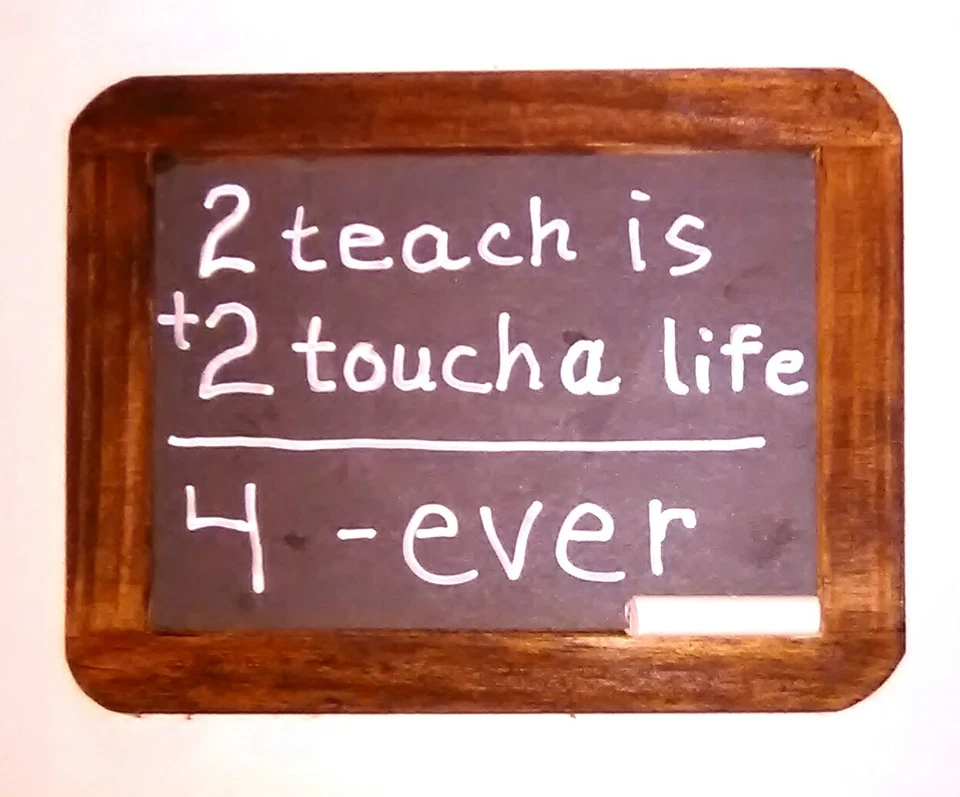 2 teach is
+2 touch a life
4 -ever